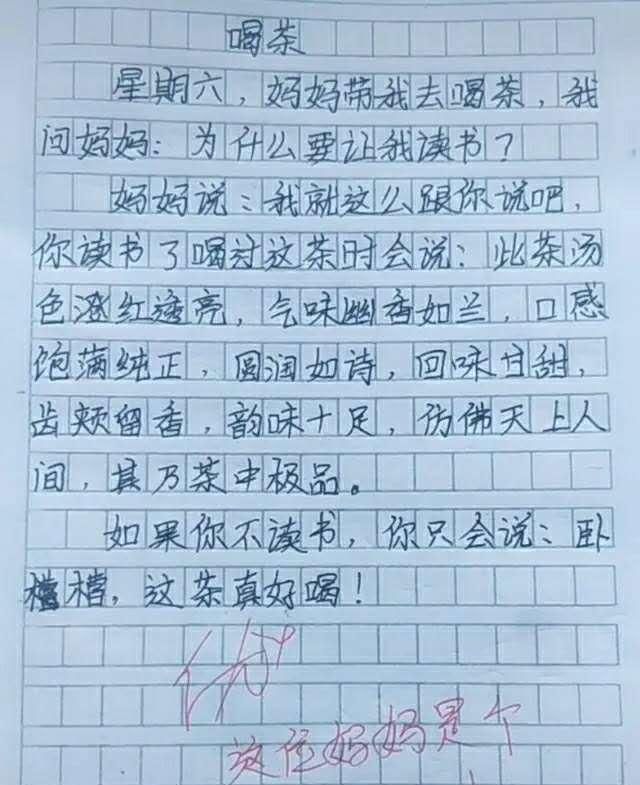 喝茶
星期六，妈妈带我去喝茶，我
问妈妈：为什么要让我读书？
妈妈说：我就这么跟你说吧，
你读书了喝过这茶时会说：此茶汤
色澄红透亮，气味幽香如兰，口感
饱满纯正，圆润如诗，回味甘甜，
齿颊留香，韵味十足，仿佛天上人
间，其乃茶中极品。
如果你不读书，你只会说：卧
槽，这茶真好喝！
优+
这位妈妈是个